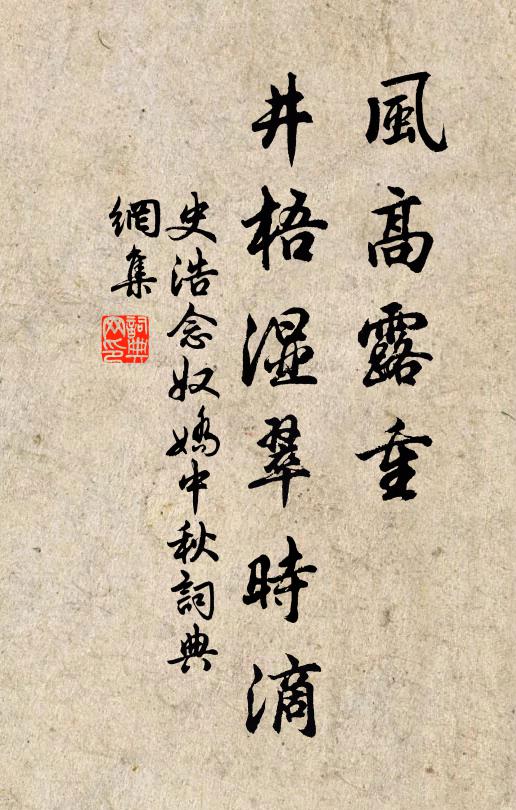 風高露重
井梧濕翠時滴
史浩念奴嬌中秋詞典
網集
詞典
网印